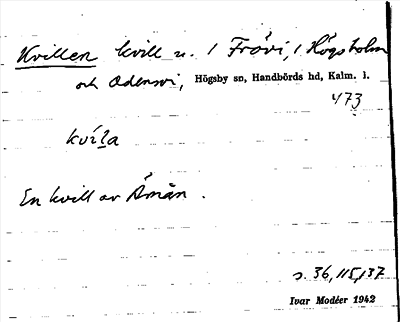 Kvillen kvill n. / Frövi, / Högsholm
och Odensvi, Högsby sn, Handbörds hd, Kalm. l.
473
kvíla
En kvill av Åmån.
s. 36, 115, 137
Ivar Modéer 1942